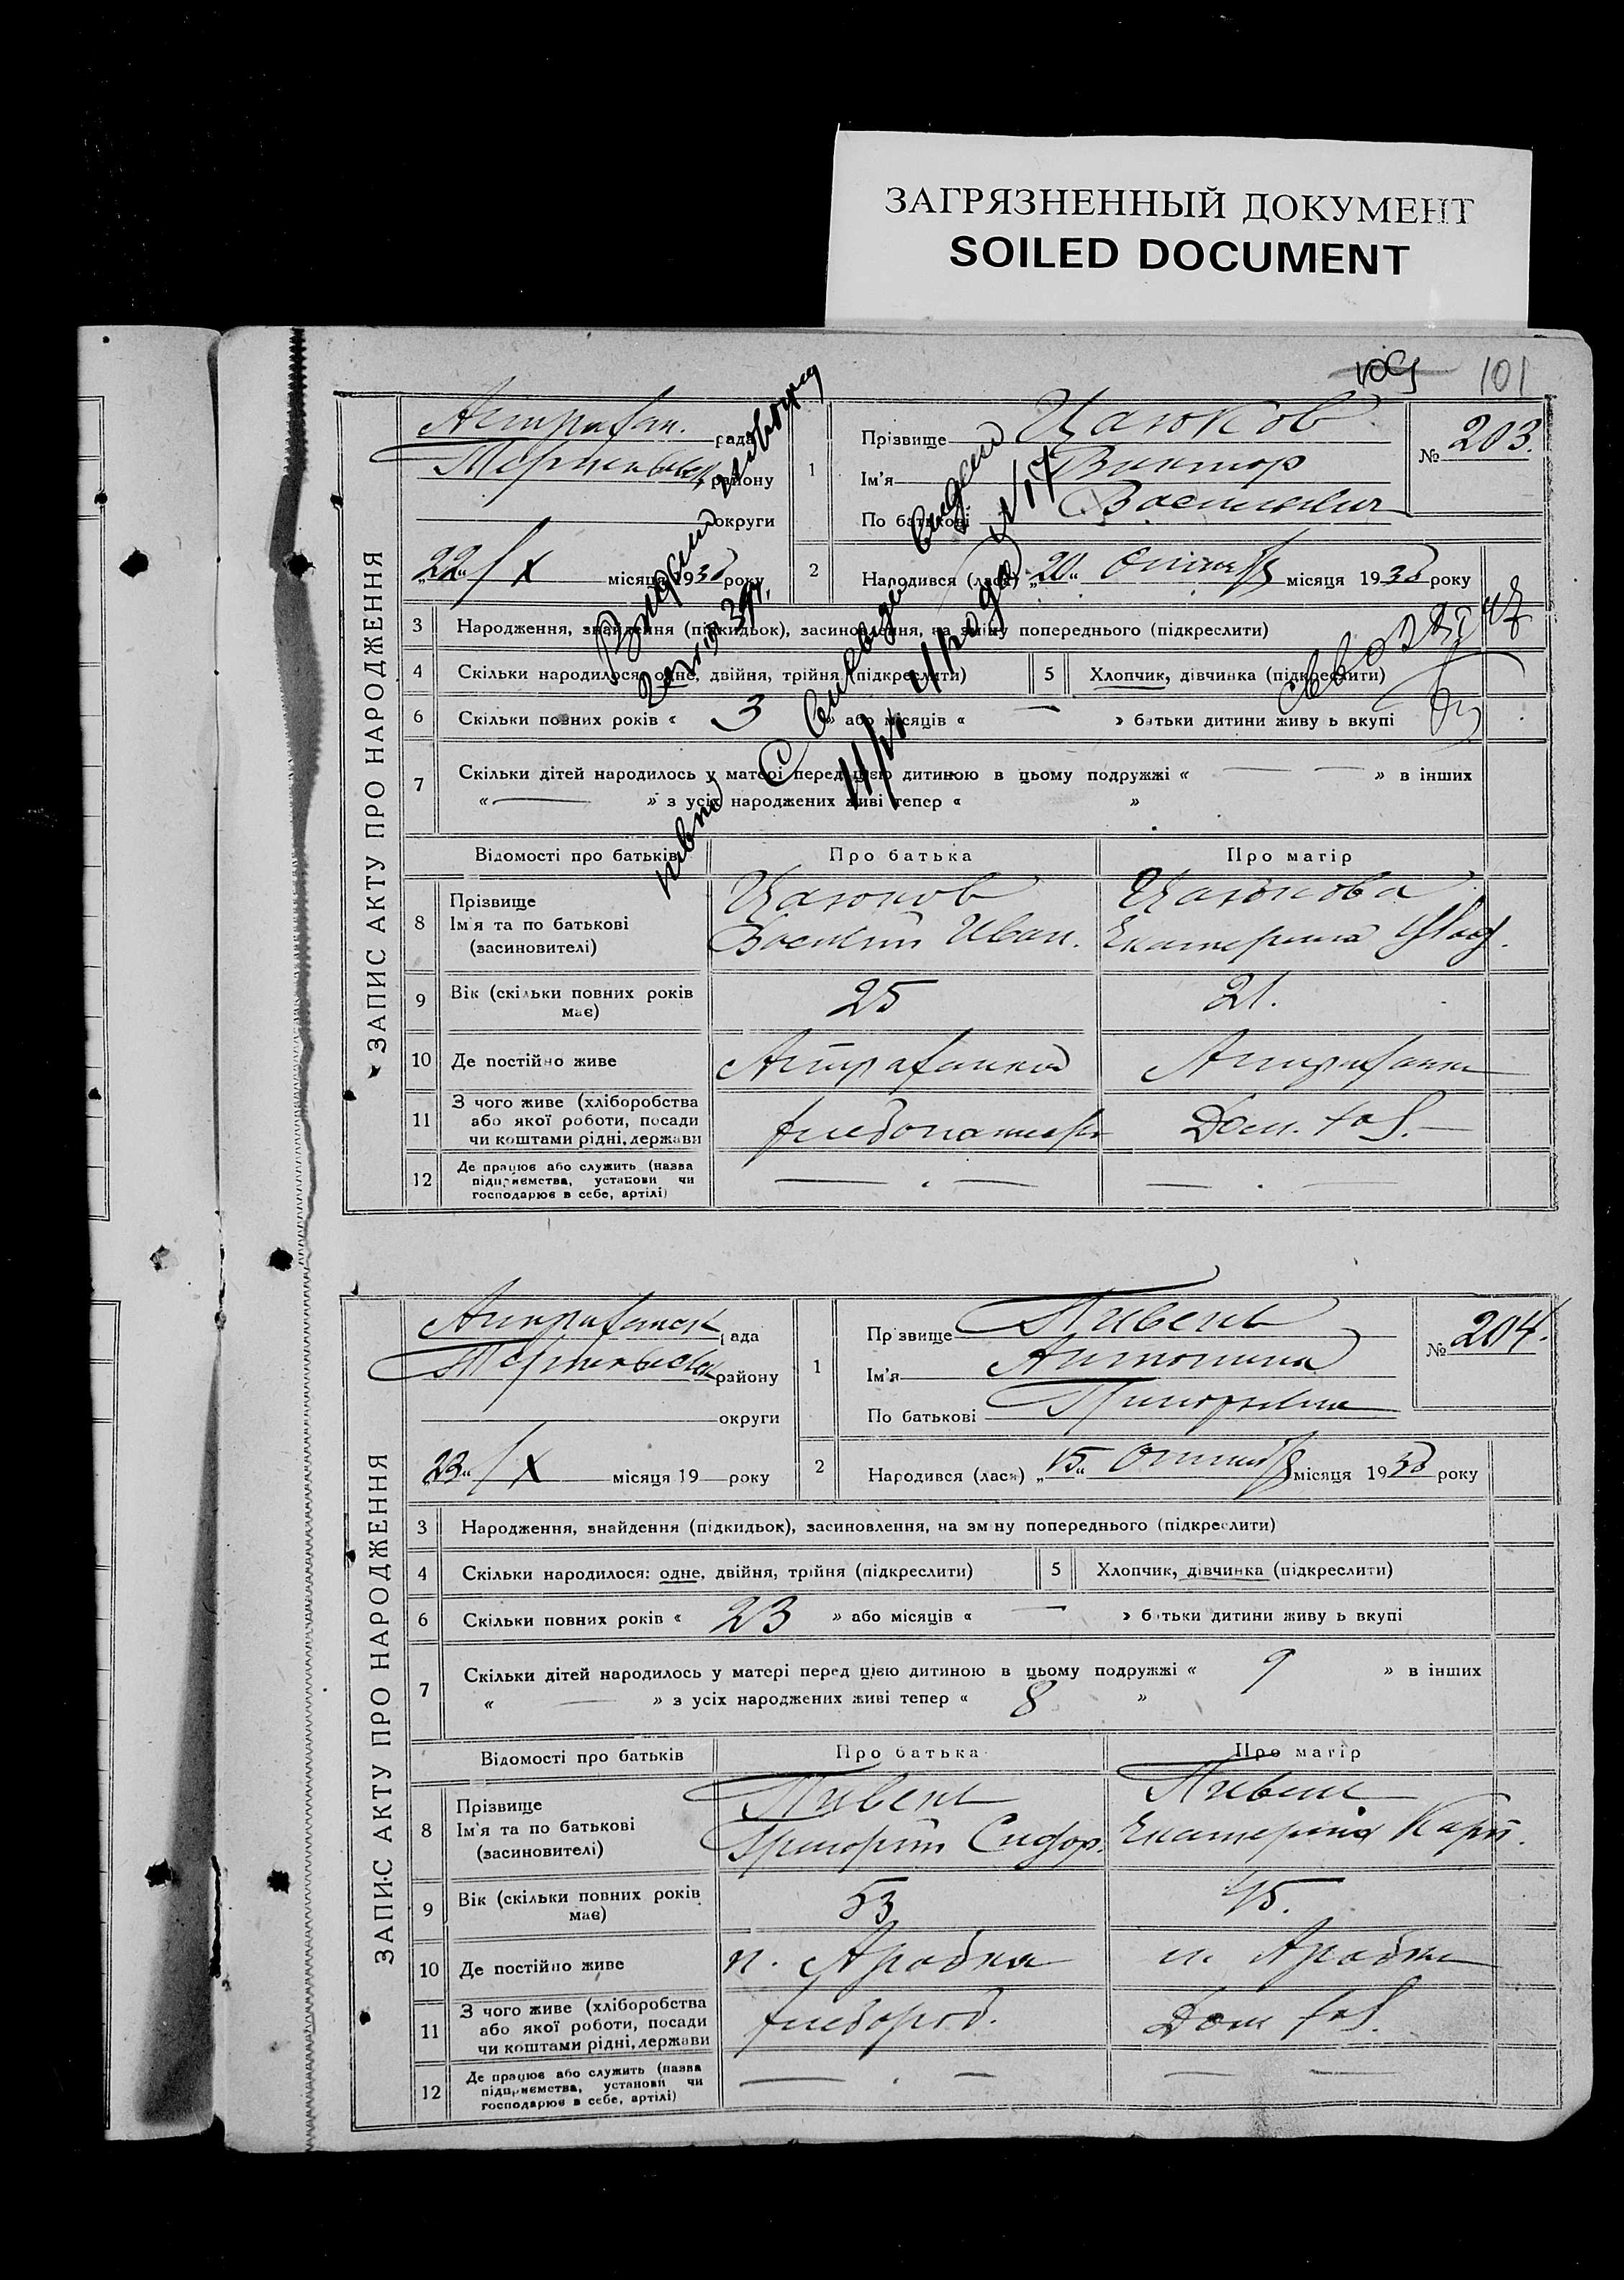 ЗАГРЯЗНЕННЫЙ ДОКУМЕНТ
SOILED DOCUMENT
101
ЗАПИС АКТУ ПРО НАРОДЖЕННЯ
Астрахан. рада
району
округи
„22“ / X місяця 1930 року
1
Прізвище Цатоков
Ім'я Виктор
По батькові Васильевич
№ 203.
2
Народився (лася) „20“ Октяб місяця 1930 року
3 Народження, знайдення (підкидьок), засиновлення, на зміну попереднього (підкреслити)
4 Скільки народилося: одне, двійня, трійня (підкреслити)
5 Хлопчик, дівчинка (підкреслити)
6 Скільки повних років « 3 » або місяців « — » батьки дитини живуть вкупі
7 Скільки дітей народилось у матері перед цією дитиною в цьому подружжі « — — » в інших
« — » з усіх народжених живі тепер « »
Відомості про батьків Про батька Про матір
8 Прізвище
Ім'я та по батькові
(засновителі)
Василий Иван. Екатерина
9 Вік (скільки повних років має) 25 21.
10 Де постійно живе Астраханка Астраханка
11 З чого живе (хліборобства
або якої роботи, посади
чи коштами рідні, держави
Дом. хоз.
12 Де працює або служить (назва
підприємства, установи чи
господарює в себе, артілі) — . — — . —
ЗАПИС АКТУ ПРО НАРОДЖЕННЯ
Астраханск рада
району
округи
„23“ / X місяця 19 року
1
Прізвище Пивень
Ім'я Антонина
По батькові Григорьевна
№ 204.
2
Народився (лася) „15“ Октяб місяця 1930 року
3 Народження, знайдення (підкидьок), засиновлення, на зміну попереднього (підкреслити)
4 Скільки народилося: одне, двійня, трійня (підкреслити)
5 Хлопчик, дівчинка (підкреслити)
6 Скільки повних років « 23 » або місяців « — » батьки дитини живуть вкупі
7 Скільки дітей народилось у матері перед цією дитиною в цьому подружжі « 9 » в інших
« — » з усіх народжених живі тепер « 8 »
Відомості про батьків Про батька Про матір
8 Прізвище
Ім'я та по батькові
(засиновителі)
Пивень Пивень
Григорий Сидор. Екатерина Карп.
9 Вік (скільки повних років має) 53 45.
10 Де постійно живе
11 З чого живе (хліборобства
або якої роботи, посади
чи коштами рідні, держави
хлебороб. Дом хоз.
12 Де працює або служить (назва
підприємства, установи чи
господарює в себе, артілі) — . — — —